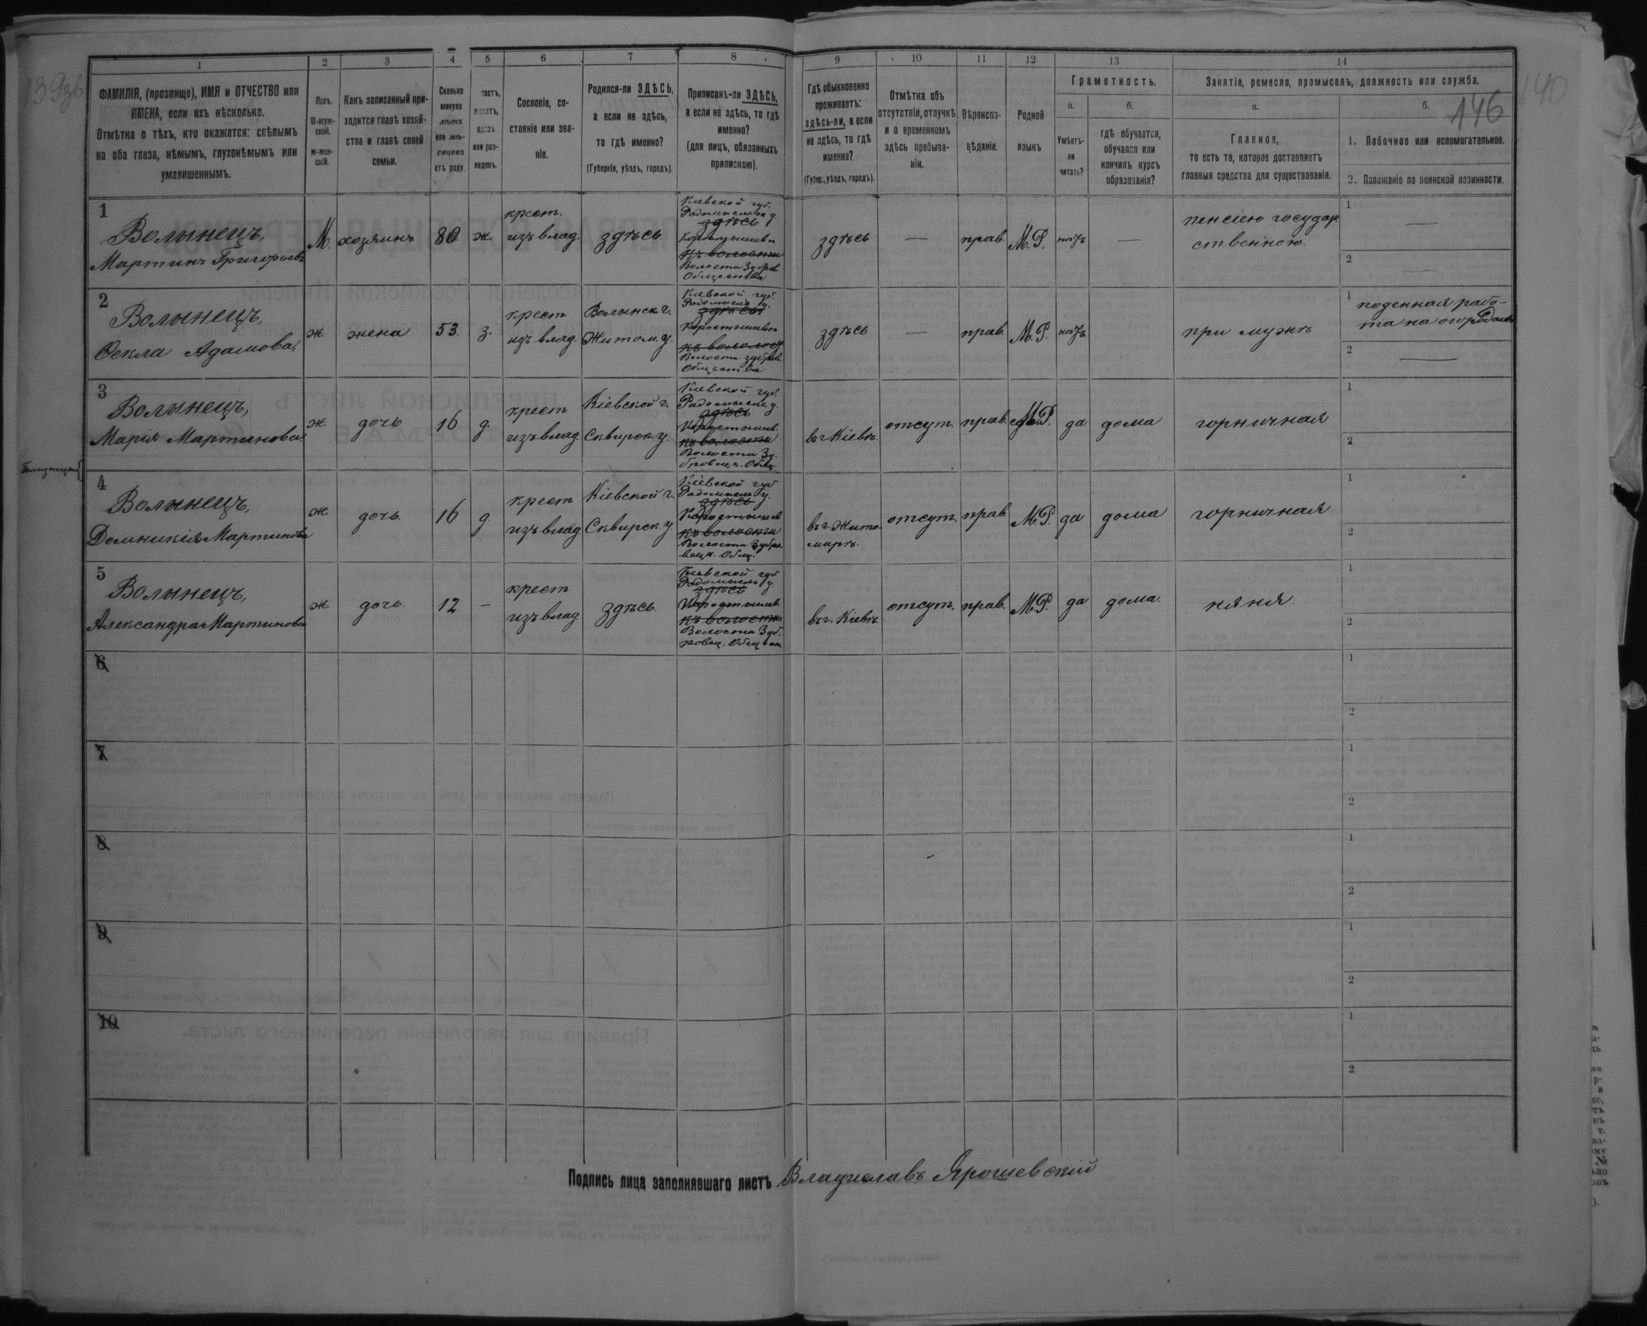 139зв
140
146
1
2
3
4
5
6
7
8
9
10
11
12
13
14
ФАМИЛІЯ, (прозвище), ИМЯ и ОТЧЕСТВО или
ИМЕНА, если ихъ нѣсколько.
Отмѣтка о тѣхъ, кто окажется: слѣпымъ
на оба глаза, нѣмымъ, глухонѣмымъ или
умалишеннымъ.
Полъ.
М-муж-
ской.
ж-жен-
скій.
Какъ записанный при-
ходится главѣ хозяй-
ства и главѣ своей
семьи.
Сколько
минуло
лѣтъ
или мѣ-
сяцевъ
отъ роду.
Сословіе, со-
стояніе или зва-
ніе.
Родился-ли ЗДѢСЬ,
а если не здѣсь,
то гдѣ именно?
(Губернія, уѣздъ, городъ).
Приписанъ-ли ЗДѢСЬ,
а если не здѣсь, то гдѣ
именно?
(для лицъ, обязанныхъ
припискою).
Гдѣ обыкновенно
проживаетъ:
здѣсь-ли, а если
не здѣсь, то гдѣ
именно?
(Губер., уѣздъ, городъ).
Отмѣтка объ
отсутствіи, отлучкѣ
и о временномъ
здѣсь пребыва-
ніи.
Вѣроиспо-
вѣданіе.
Родной
языкъ
Грамотность.
а.
Умѣетъ-
ли
читать?
б.
гдѣ обучается,
обучался или
кончилъ курсъ
образованія?
Занятіе, ремесло, промыселъ, должность или служба.
а.
Главное,
то есть то, которое доставляетъ
главныя средства для существованія.
б.
1. Побочное или вспомогательное.
2. Положеніе по воинской повинности.
1
Волынецъ,
Мартинъ Григорьевъ
М. хозяинъ 80 ж. крест. изъ влад. здѣсь.
Кіевской губ.
Радомысльск у
здѣсь
Волости
здѣсь — прав. М.Р. нѣтъ —
пенсіею государ
ственною
1 —
2
2
Волынецъ,
Ѳекла Адамова
ж жена 53. з. крест изъ влад. Волынск г. Житом. у.
Кіевской губ.
здѣсь
здѣсь — прав. М.Р. нѣтъ
при мужѣ
1 поденная рабо-
та на огородахъ
2 —
3
Волынецъ,
Марія Мартинова
ж дочь 16 д. крест изъ влад Кіевской г. Сквирск. у.
Кіевской губ.
здѣсь
въ г. Кіевѣ. отсут. прав. М.Р. да дома
горничная
1
2
4
Волынецъ,
Домникія Мартинова
ж дочь. 16 д. крест изъ влад Кіевской г. Сквирск. у
Кіевской губ
здѣсь
въ г. Жито-
мирѣ. отсут. прав. М.Р. да дома
горничная
1
2
5
Волынецъ,
Александра Мартинова
ж дочь. 12 — крест изъ влад здѣсь.
здѣсь
въ г. Кіевѣ отсут. прав. М.Р. да дома.
няня.
1
2
6
1
2
7
1
2
8
1
2
9
1
2
10
1
2
Подпись лица заполнявшаго листъ Владиславъ Ярошевскій